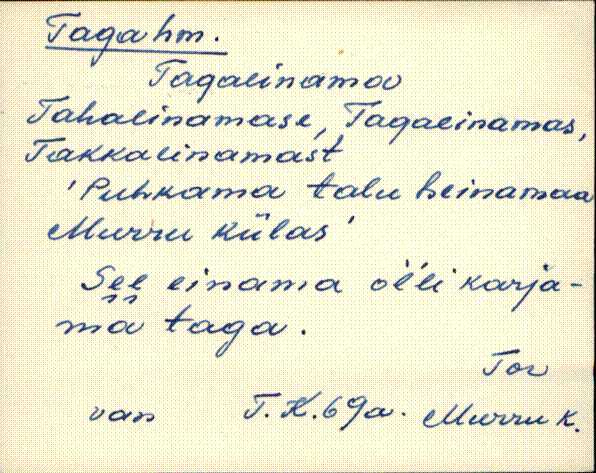 Taga hm.
Tagaeinamoo
Tahaeinamase, Tagaeinamas,
Takkaeinamast
'Puhkama talu heinamaa
Murru külas'
See einama ol'li karja-
ma taga.
Tor
van T.K. 69a. Murru k.